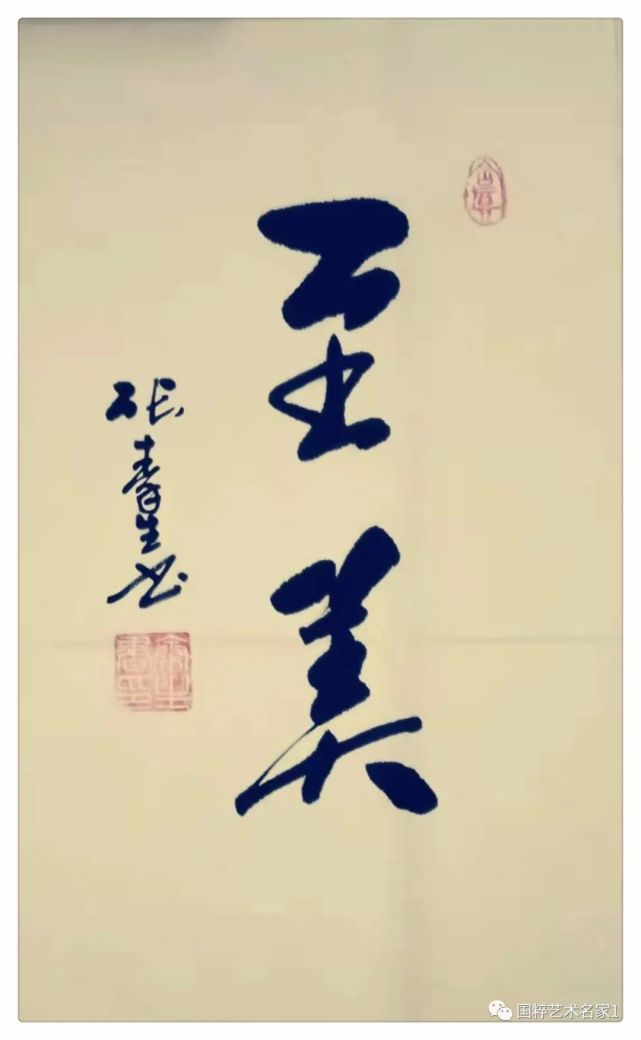 至美
张春生书
国粹艺术名家1